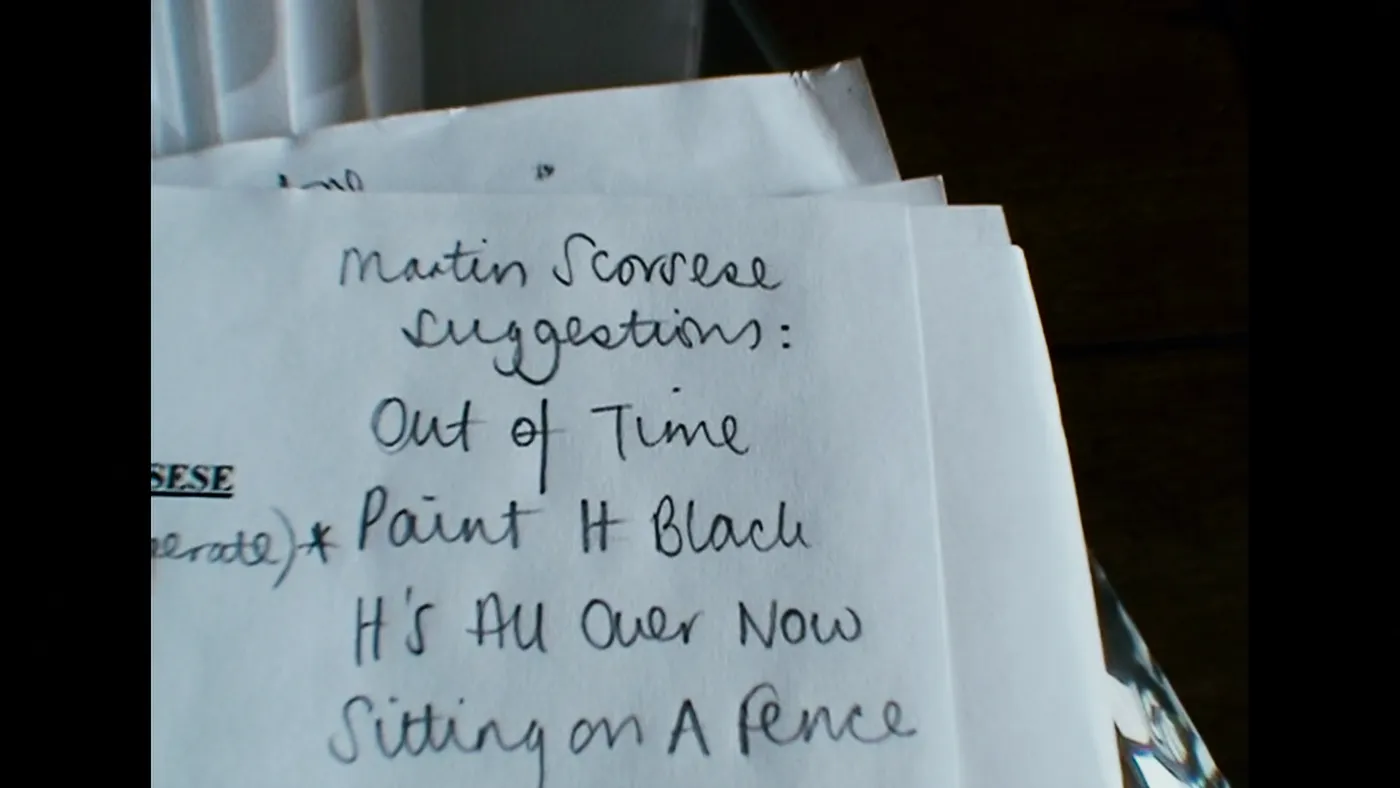 Martin Scorsese
Suggestions:
Out of Time
SESE
Paint It Black
erate)*
It's All Over Now
Sitting on A Fence